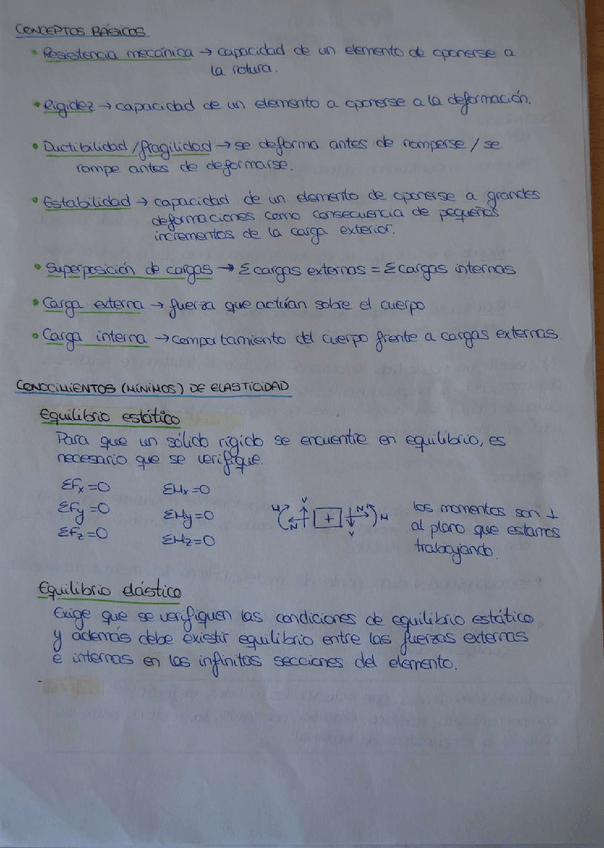 CONCEPTOS BÁSICOS
• Resistencia mecánica → capacidad de un elemento de oponerse a
la rotura.
• Rigidez → capacidad de un elemento a oponerse a la deformación.
• Ductibilidad/fragilidad → se deforma antes de romperse / se
rompe antes de deformarse.
• Estabilidad → capacidad de un elemento de oponerse a grandes
deformaciones como consecuencia de pequeños
incrementos de la carga exterior.
• Superposición de cargas → Σ cargas externas = Σ cargas internas
• Carga externa → fuerza que actúan sobre el cuerpo
• Carga interna → comportamiento del cuerpo frente a cargas externas.
CONOCIMIENTOS (MÍNIMOS) DE ELASTICIDAD
Equilibrio estático
Para que un sólido rígido se encuentre en equilibrio, es
necesario que se verifique.
ΣFx=0 ΣMx=0
ΣFy=0 ΣMy=0
ΣFz=0 ΣMz=0
M N V + N V M
los momentos son ⊥
al plano que estamos
trabajando.
Equilibrio elástico
Exige que se verifiquen las condiciones de equilibrio estático
y además debe existir equilibrio entre las fuerzas externas
e internas en las infinitas secciones del elemento.